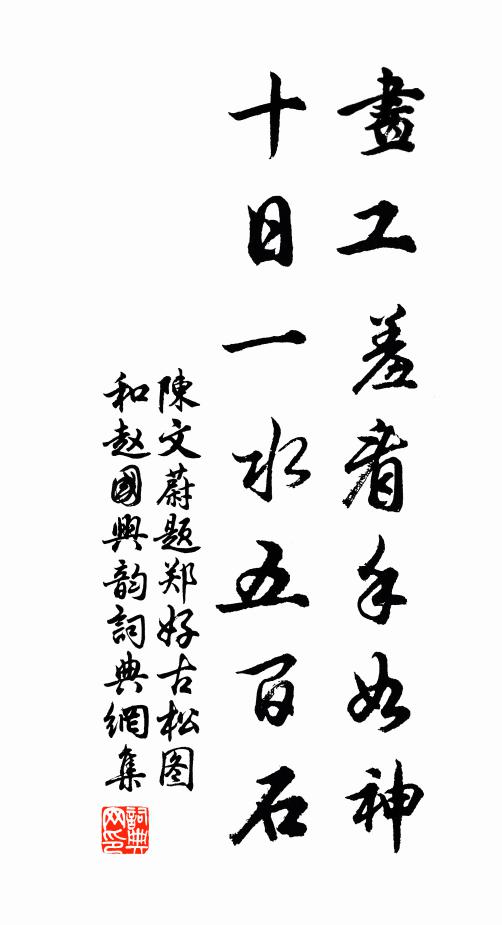 畫工羞看手如神
十日一水五百石
陳文蔚題郑好古松图
和赵國興韵詞典網集
詞典網印